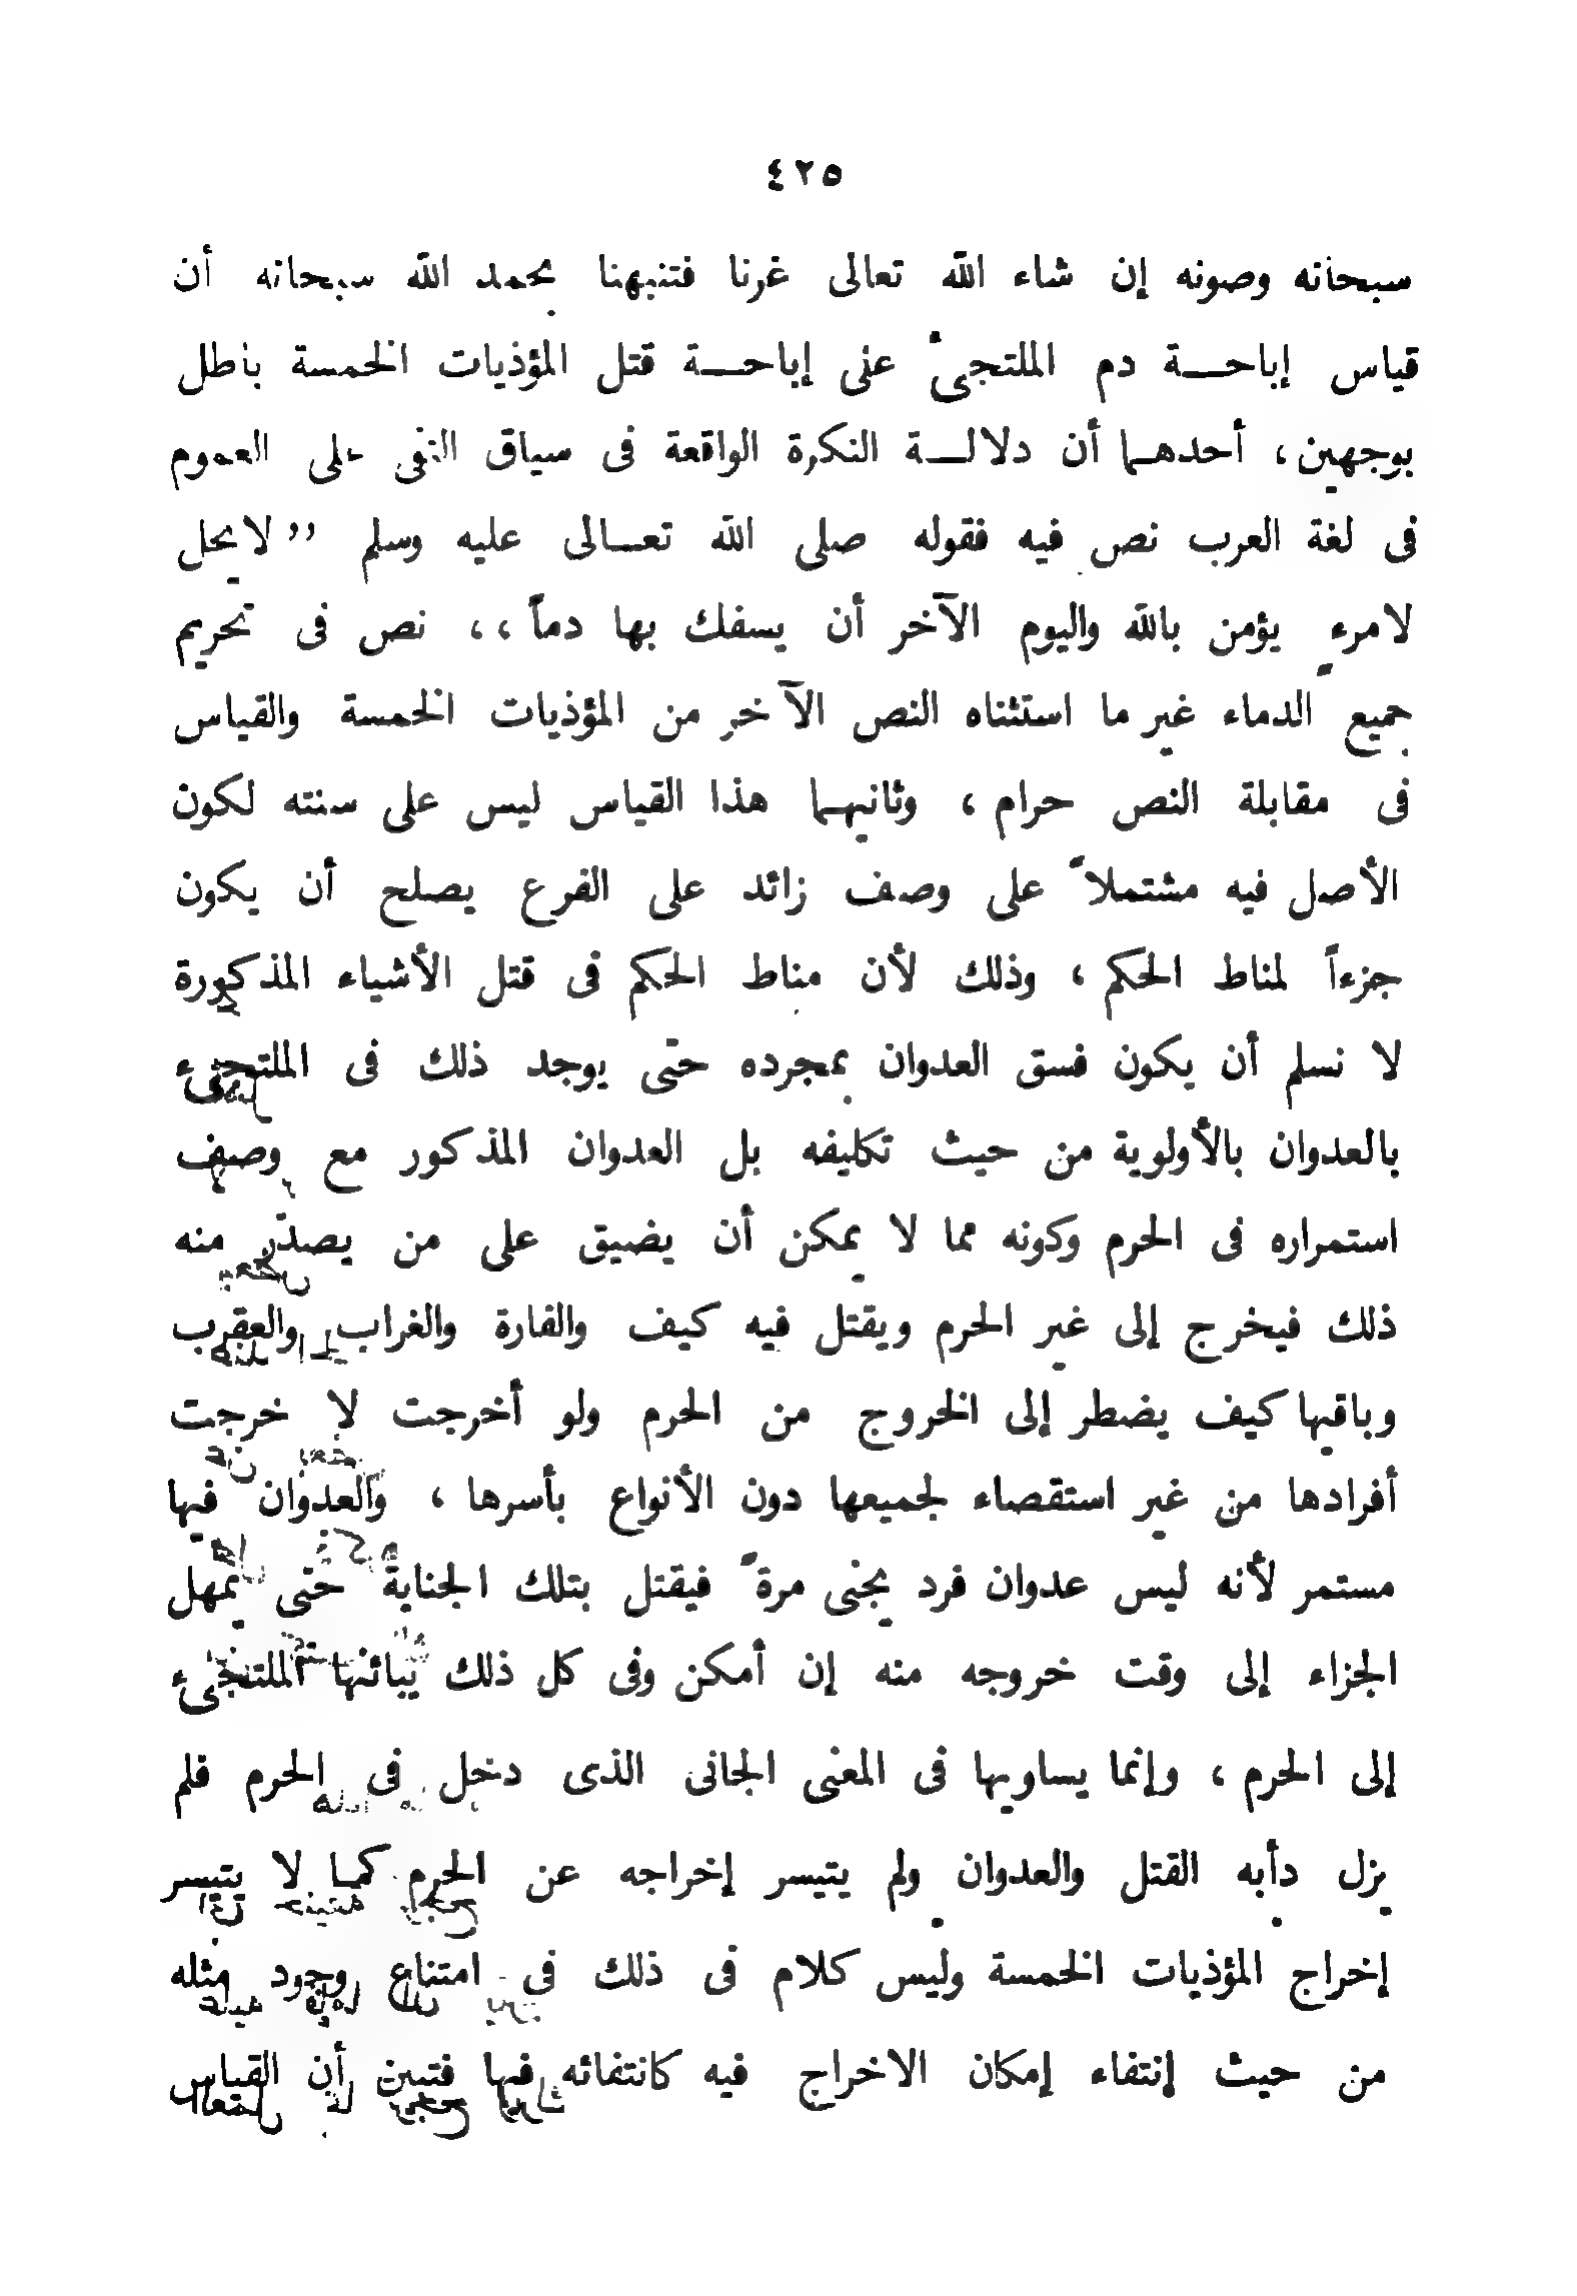 ٤٢٥
سبحانه وصونه إن شاء الله تعالى غرنا فتنبهنا بحمد الله سبحانه أن
قياس إباحــة دم الملتجئ على إباحــة قتل المؤذيات الخمسة باطل
بوجهين، أحدهــا أن دلالــة النكرة الواقعة فى سياق النفى على العموم
فى لغة العرب نص فيه فقوله صلى الله تعــالى عليه وسلم ”لا يحل
لامرء يؤمن بالله واليوم الآخر أن يسفك بها دماً،، نص فى تحريم
جميع الدماء غير ما استثناه النص الآخر من المؤذيات الخمسة والقياس
فى مقابلة النص حرام ، وثانيهــا هذا القياس ليس على سنته لكون
الأصل فيه مشتملاً على وصف زائد على الفرع يصلح أن يكون
جزءاً لمناط الحكم ، وذلك لأن مناط الحكم فى قتل الأشياء المذكورة
لا نسلم أن يكون فسق العدوان بمجرده حتى يوجد ذلك فى الملتجىء
بالعدوان بالأولوية من حيث تكليفه بل العدوان المذكور مع وصف
استمراره فى الحرم وكونه مما لا يمكن أن يضيق على من يصدر منه
ذلك فيخرج إلى غير الحرم ويقتل فيه كيف والفارة والغراب والعقرب
وباقيها كيف يضطر إلى الخروج من الحرم ولو أخرجت لا خرجت
أفرادها من غير استقصاء لجميعها دون الأنواع بأسرها ، والعدوان فيها
مستمر لأنه ليس عدوان فرد يجنى مرة فيقتل بتلك الجناية حتى يمهل
الجزاء إلى وقت خروجه منه إن أمكن وفى كل ذلك يبائنها الملتجىء
إلى الحرم ، وإنما يساويها فى المعنى الجانى الذى دخل فى الحرم فلم
يزل دأبه القتل والعدوان ولم يتيسر إخراجه عن الحرم كما لا يتيسر
إخراج المؤذيات الخمسة وليس كلام فى ذلك فى امتناع وجود مثله
من حيث إنتفاء إمكان الاخراج فيه كانتفائه فيها فتبين أن القياس